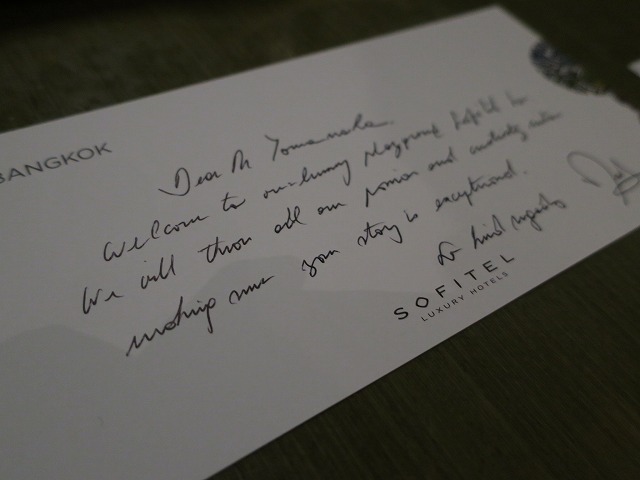 BANGKOK
Dear Mr Yamanaka.
Welcome to our luxury playground Sofitel
We will throw all our passion and
making sure your story is exceptional.
kind regards
SOFITEL
LUXURY HOTELS